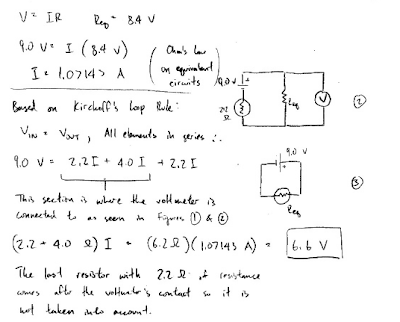 V = IR   Req = 8.4 V
9.0 V = I (8.4 V)
I = 1.07143 A
Ohm's Law
on equivalent
circuits
Based on Kirchoff's Loop Rule:
V_IN = V_OUT, All elements in series ∴
9.0 V = 2.2I + 4.0 I + 2.2 I
This section is where the voltmeter is
connected to as seen in figures ① & ②
(2.2 + 4.0 Ω) I = (6.2 Ω)(1.07143 A) = 6.6 V
The last resistor with 2.2 Ω of resistance
comes after the voltmeter's contact so it is
not taken into account.
9.0 V
2.2
Ω
Req
V
②
9.0 V
Req
③